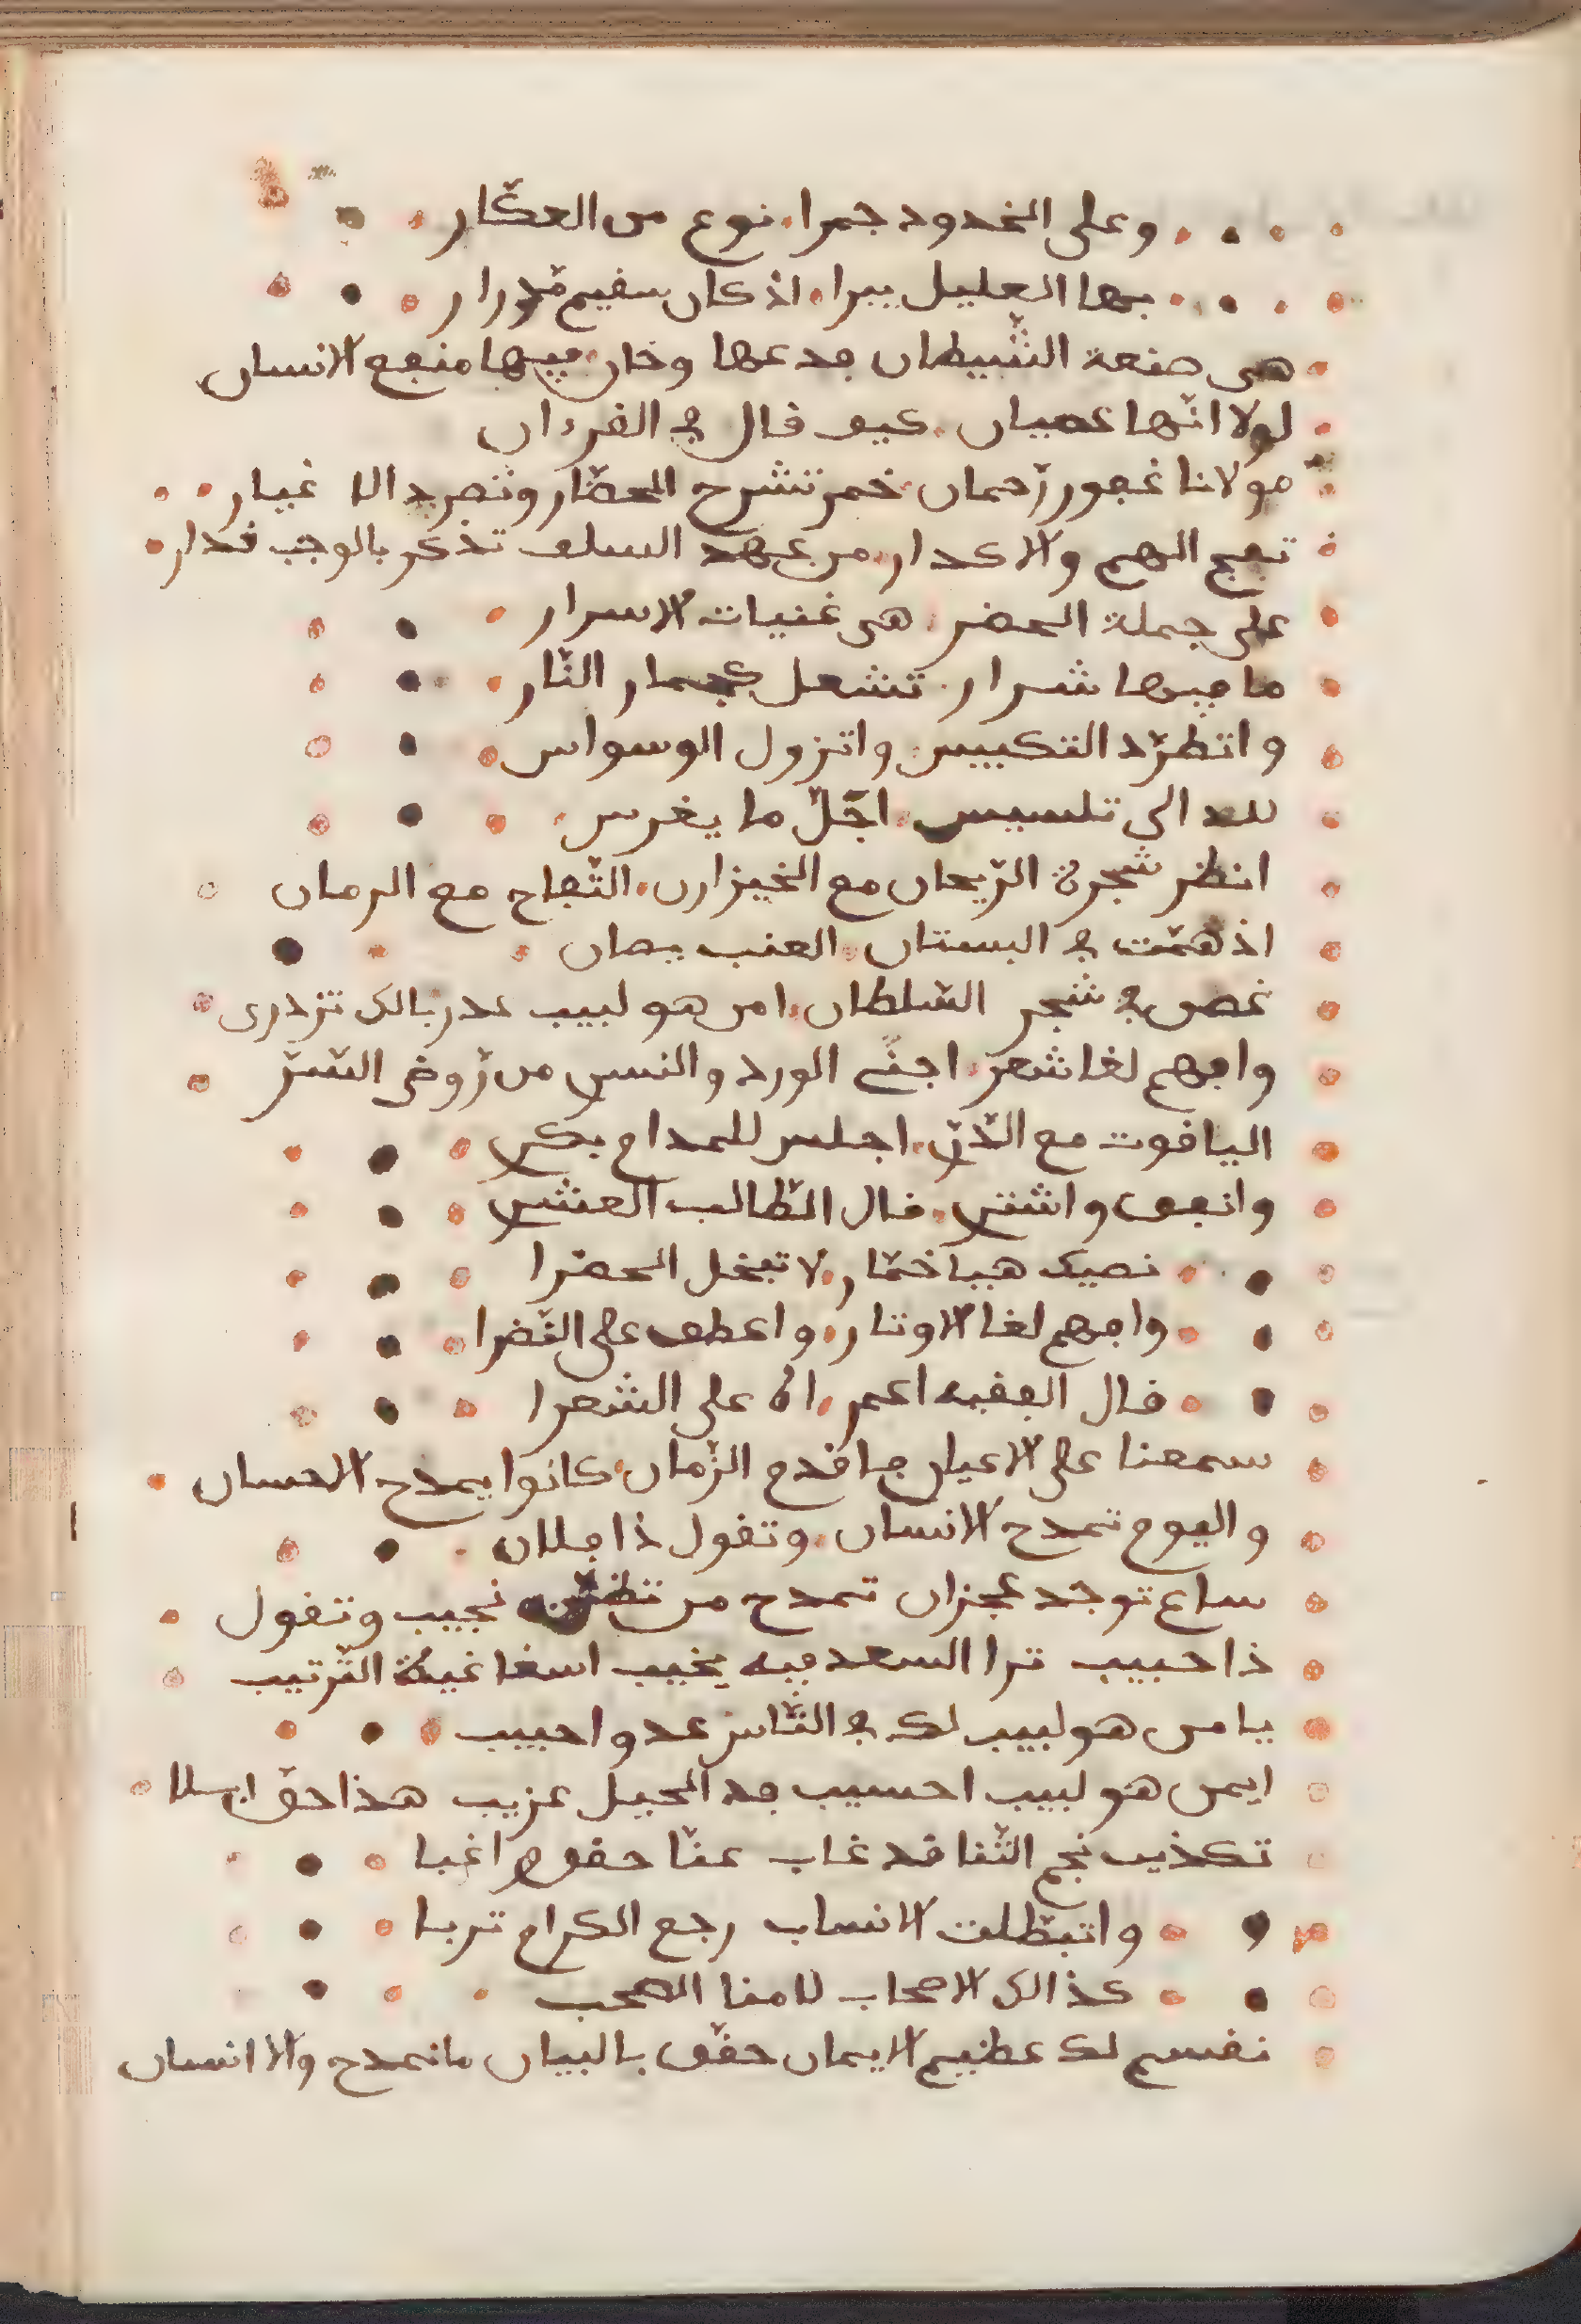 وعلى الخدود جمرا نوع من العكّار
بها العليل يبرا اذ كان سفيم مّدرار
هى صنعة الشّيطان فدعها وخان فيها منبع الانسان
لولا انّها عصيان كيف فال فى الفرءان
مولانا غفور رّحمان خمر تشرح الحضّار وتصريد الاغيار
تفج الهم والاكدار من عهد السلف تذكر بالوجب فدار
على جملة الحضر هى غنيات الاسرار
ما فيها شرار تشعل كجمار النّار
واتطرّد التكييس واتزول الوسواس
للد الى تلسيس اجّلّ ما يغرس
انظر شجرة الرّيحان مع الخيزارن التّفاح مع الرمان
اذ همّت فى البستان العنب يصان
غصن فى شجر السّلطان امن هو لبيب عدر بالك تزدرى
وافهم لغا شعر اجنى الورد والنسر من رّوض السّرّ
اليافوت مع الدّرّ اجلس للمدام بكرى
وانفق واشترى فال الطّالب العنترى
نصيك هبا خمّار لا تبخل الحضرا
وافهم لغا الاوتار واعطف على النّضرا
فال الففيه اعمر اه على الشعرا
سمعنا على الاعيان فيا فدم الزّمان كانوا يمدح الاحسان
واليوم تمدح الانسان وتفول ذا فلان
ساع توجد عجزان تمدح من تظنّ نجيب وتفول
ذا حبيب ترا السعد فيه يخيب اسغا غية التّرتيب
يا من هو لبيب لك فى النّاس عدو احبيب
ايمن هو لبيب احسيب فد المحيل عزيب هذا حق ابلا
تكذيب نجم الثّنا فد غاب عنّا حفوه اغبا
واتبطّلت الانساب رجع الكرام تربا
كذالك الاصحاب لامنا الصحب
نفسم لك عظيم الايمان حفّى بالبيان ما نمدح والا انسان